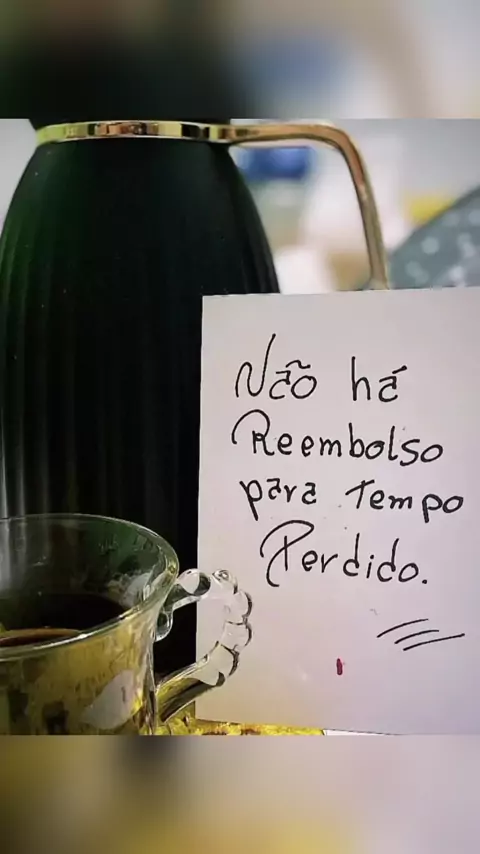 Não há
Reembolso
para Tempo
Perdido.